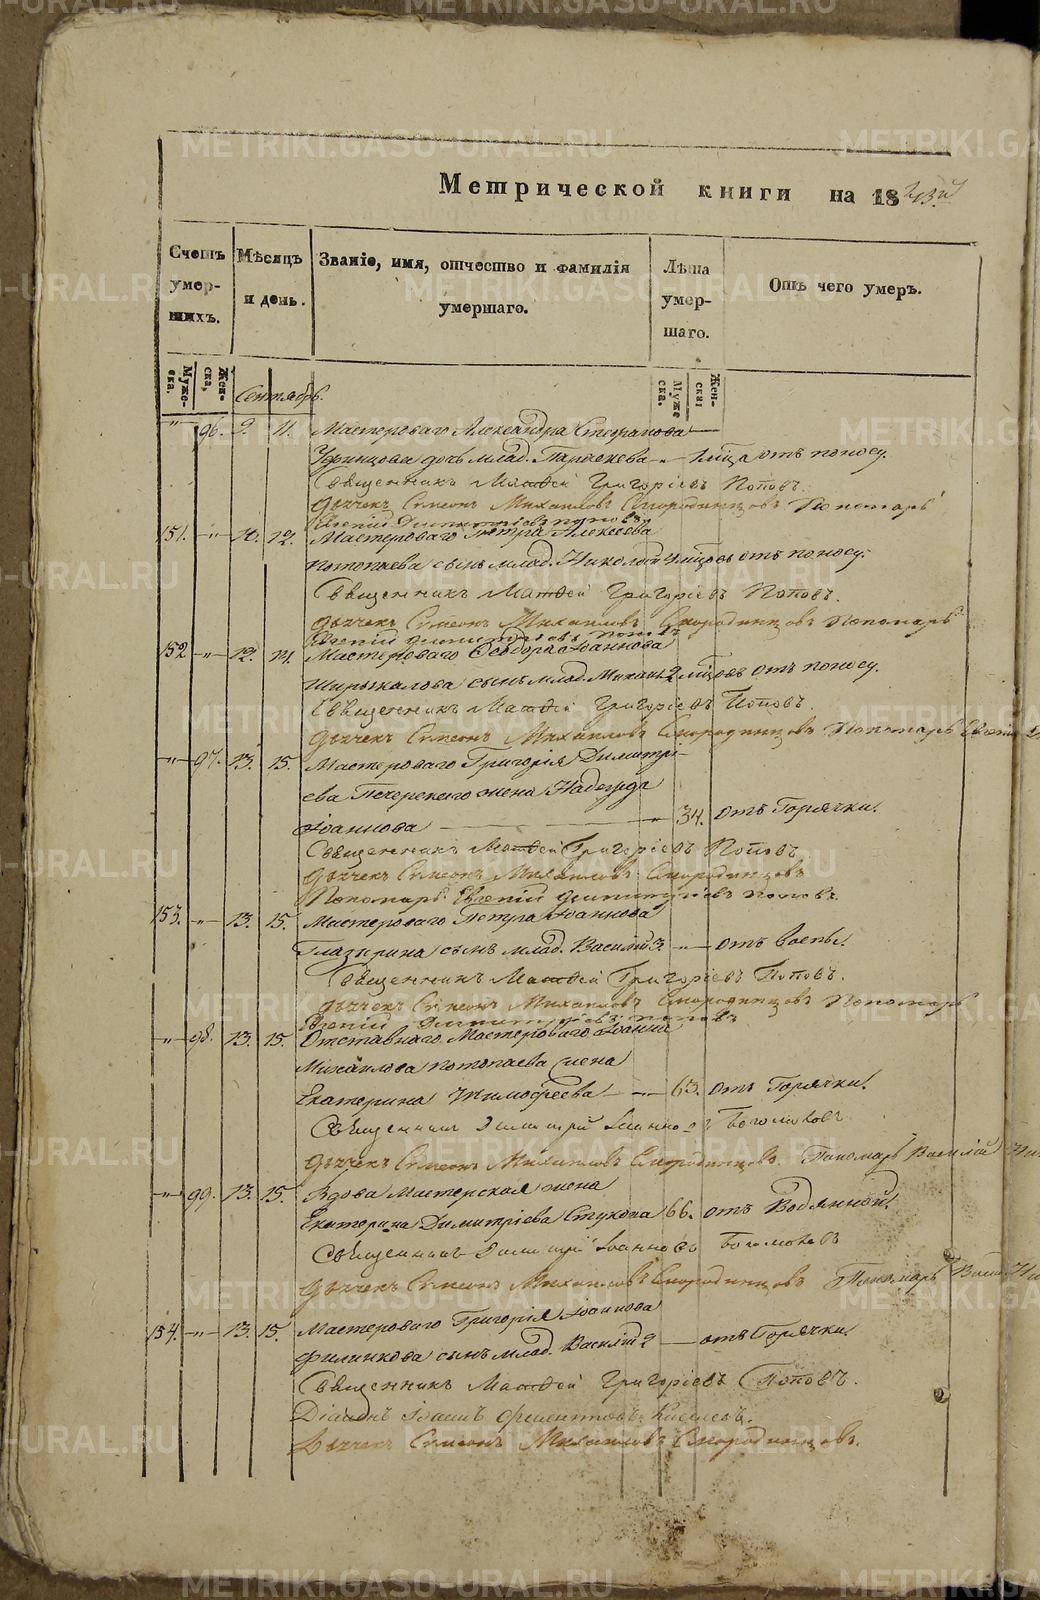 Метрической книги на 1843й
Счетъ умершихъ.
Мѣсяцъ и день.
Званіе, имя, отчество и фамилія умершаго.
Лѣта умершаго.
Отъ чего умеръ.
Мужеска.
Женска,
Мужеска.
Женска;
Сентябрь.
" 96. 9. 11. Мастероваго Александра Стефанова
дочь млад. Парасковья " 1 мѣсяца отъ поносу.
Священникъ Матѳей Григоріевъ Поповъ.
Дьячекъ Симеонъ Михаиловъ Смородинцовъ Пономарь
Евгеній Димитріевъ Поповъ
151. " 10. 12. Мастероваго Петра Алексеева
Потопаева сынъ млад. Николай 4 мѣсцовъ отъ поносу.
Священникъ Матѳей Григоріевъ Поповъ.
Дьячекъ Симеонъ Михаиловъ Смородинцовъ Пономарь
Евгеній Димитріевъ Поповъ
152 " 12. 14. Мастероваго Ѳеодора Іоаннова
Ширыкалова сынъ млад. Михаилъ 2 мѣсцовъ отъ поносу.
Священникъ Матѳей Григоріевъ Поповъ.
Дьячекъ Симеонъ Михаиловъ Смородинцовъ Пономарь Евгеній
" 97. 13. 15. Мастероваго Григорія Димитрі-
ева Печерскаго жена Надежда
Іоаннова " 34. отъ Горячки.
Священникъ Матѳей Григоріевъ Поповъ
Дьячекъ Симеонъ Михаиловъ Смородинцовъ
Пономарь Евгеній Димитріевъ Поповъ.
153. " 13. 15. Мастероваго Петра Іоаннова
Глазырина сынъ млад. Василій 3. " отъ воспы.
Священникъ Матѳей Григоріевъ Поповъ.
Дьячекъ Симеонъ Михаиловъ Смородинцовъ Пономарь
Евгеній Димитріевъ Поповъ
" 98. 13. 15. Отставнаго Мастероваго Іоанна
Михаилова Потопаева жена
Екатерина Тимофеева " 63. отъ Горячки.
Священникъ Димитрій Іоанновъ Богомоловъ
Дьячекъ Симеонъ Михаиловъ Смородинцовъ. Пономарь Василій
" 99. 13. 15. Вдова Мастерская жена
Екатерина Димитріева Стукова 66. отъ Водянной.
Священникъ Димитрій Іоанновъ Богомоловъ
Дьячекъ Симеонъ Михаиловъ Смородинцовъ Пономарь
154. " 13. 15. Мастероваго Григорія Іоаннова
Филинкова сынъ млад. Василій 2 отъ Горячки.
Священникъ Матѳей Григоріевъ Поповъ.
Діаконъ Іоаннъ
Дьячекъ Симеонъ Михаиловъ Смородинцовъ.
METRIKI.GASO-URAL.RU